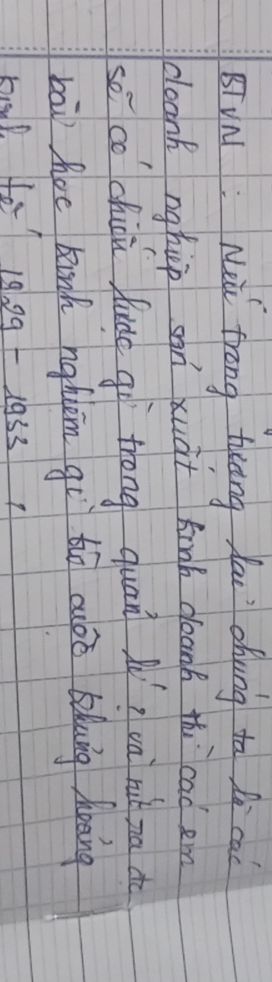 BTVN : Nếu trong tương lai chúng ta là các
doanh nghiệp sản xuất kinh doanh thì các em
sẽ có chiến lược gì trong quản lí ? và rút ra đc
bài học kinh nghiệm gì từ cuộc khủng hoảng
kinh tế 1929 - 1933